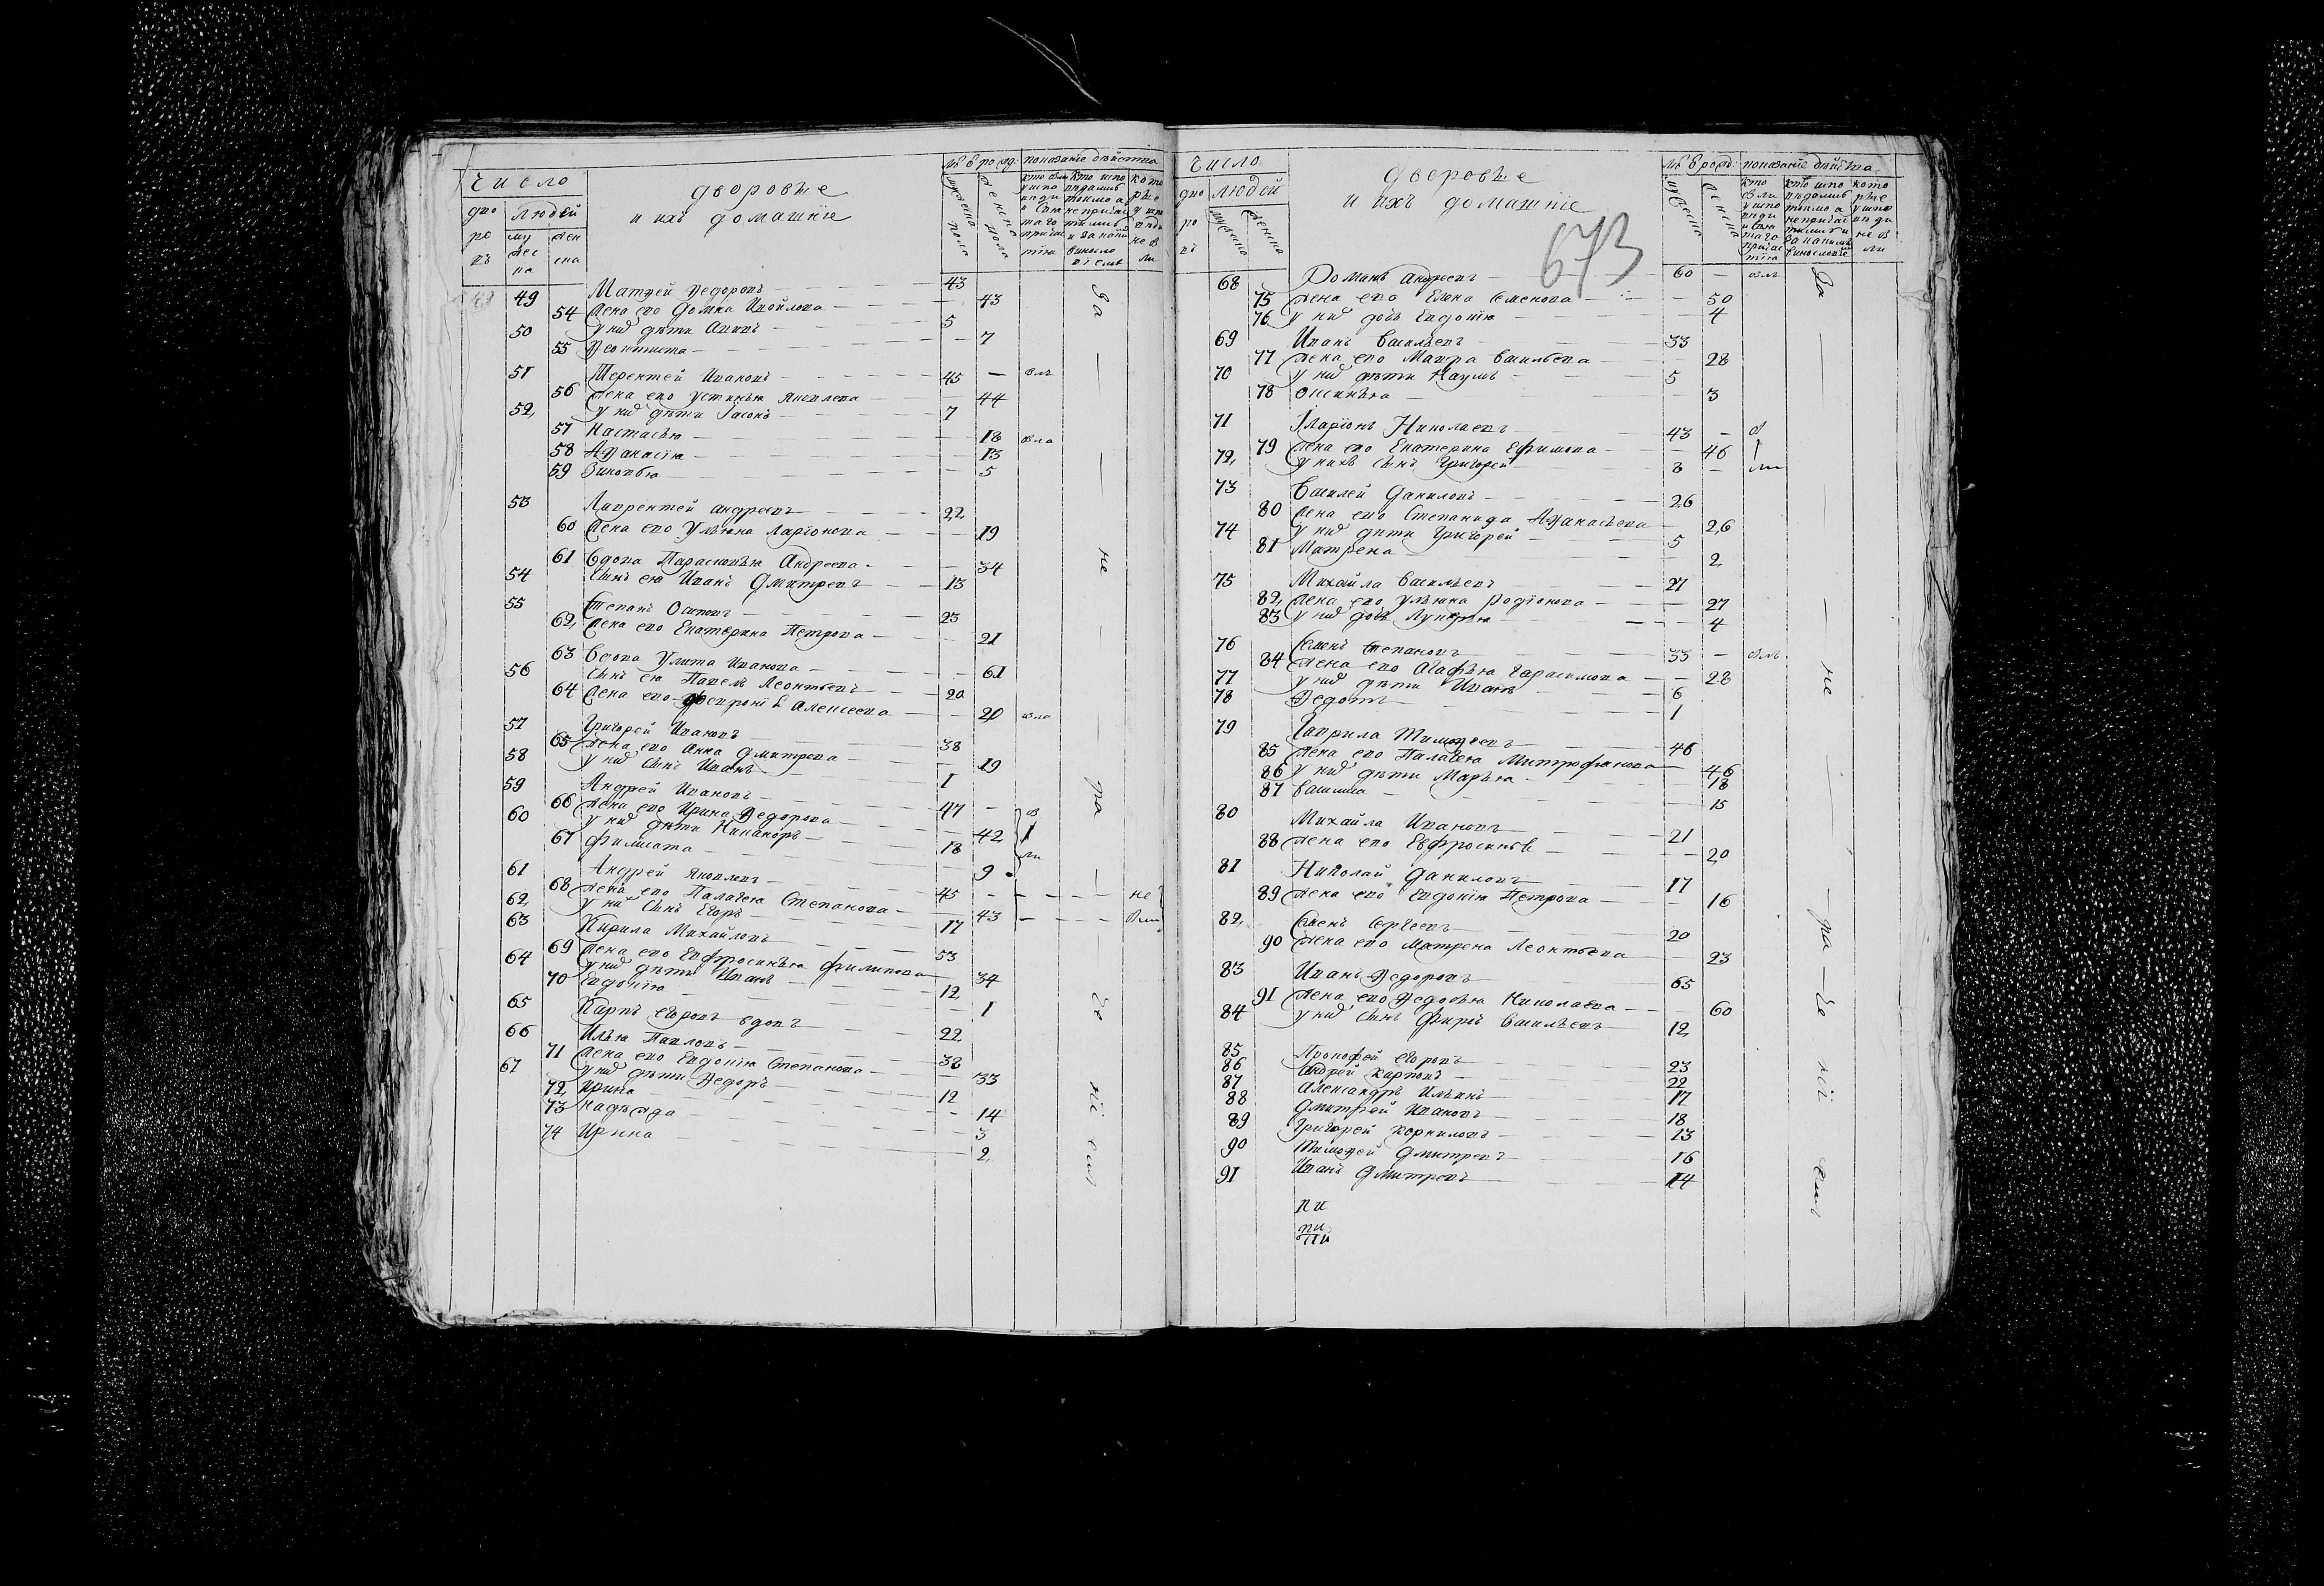 число
дворовые
и ихъ домашніе
людей
муж
жен
ска
43
49 Матѳей Ѳедоровъ 43
54 жена его Домна Ивойлова 43
50 у них дѣти Аѳипъ 5
55 Ѳеоктиста 7
51 Терентей Ивановъ 45 — былъ
56 жена его Устинья Яковлева 44
52 у них дѣти Iасонъ 7
57 Настасья 18 была
58 Аѳанасія 13
59 Зиновья 5
53 Лаврентей Андреевъ 22
60 жена его Ульяна Ларіонова 19
61 вдова Парасковья Андреева 34
54 сынъ ея Иванъ Дмитревъ 13
55 Степанъ Осиповъ 23
62 жена его Екатерина Петрова 21
63 вдова Улита Иванова 61
56 сынъ ея Павелъ Леонтьевъ 20
64 жена его Февронія Алексеева 20 была
57 Григорей Ивановъ 38
65 жена его Анна Дмитрева 19
58 у них сынъ Иванъ 1
59 Андрей Ивановъ 47
66 жена его Ирина Ѳедорова 42
60 у них дѣти Никаноръ 18
67 Филисата 9
61 Андрей Яковлевъ 45
68 жена его Палагея Степанова 43
62 у них сынъ Егоръ 17
63 Кирила Михайловъ 53
69 жена его Евфросинья Филипова 34
64 у них дѣти Иванъ 12
70 Евдокія 1
65 Карпъ Егоровъ вдовъ 22
66 Илья Павловъ 38
71 жена его Евдокія Степанова 33
67 у них дѣти Ѳедоръ 12
72 Ирина 14
73 Надежда 3
74 Ирина 2
за — не — ра — че ні емъ
число
дворовые
и ихъ домашніе
673
людей
68 Романъ Андреевъ 60 — былъ
75 жена его Елена Семенова 50
76 у них дочь Евдокія 4
69 Иванъ Васильевъ 33
77 жена его Мавра Васильева 28
70 у них дѣти Наумъ 5
78 Оксинья 3
71 Iларіонъ Николаевъ 43
79 жена его Екатерина Ефимова 46
72 у нихъ сынъ Григорей 8
73 Василей Даниловъ 26
80 жена его Степанида Аѳанасьева 26
74 у них дѣти Григорей 5
81 Матрена 2
75 Михайла Васильевъ 27
82 жена его Ульяна Родіонова 27
83 у них дочь Лукерья 4
76 Семенъ Степановъ 33 — былъ
84 жена его Агафья Гарасимова 28
77 у них дѣти Иванъ 6
78 Ѳедотъ 1
79 Гаврила Тимоѳеевъ 46
85 жена его Палагея Митрофанова 46
86 у них дѣти Марья 18
87 Василиса 15
80 Михайла Ивановъ 21
88 жена его Евфросинья 20
81 Николай Даниловъ 17
89 жена его Евдокія Петрова 16
82 Семенъ Сергеевъ 20
90 жена его Матрена Леонтьева 23
83 Иванъ Ѳедоровъ 65
91 жена его Ѳедосья Николаева 60
84 у них сынъ Фирсъ Васильевъ 12
85 Прокофей Егоровъ 23
86 Андрей Карповъ 22
87 Александръ Ильинъ 17
88 Дмитрей Ивановъ 18
89 Григорей Корниловъ 13
90 Тимоѳей Дмитревъ 16
91 Иванъ Дмитревъ 14
за — не — ра че ніі емъ